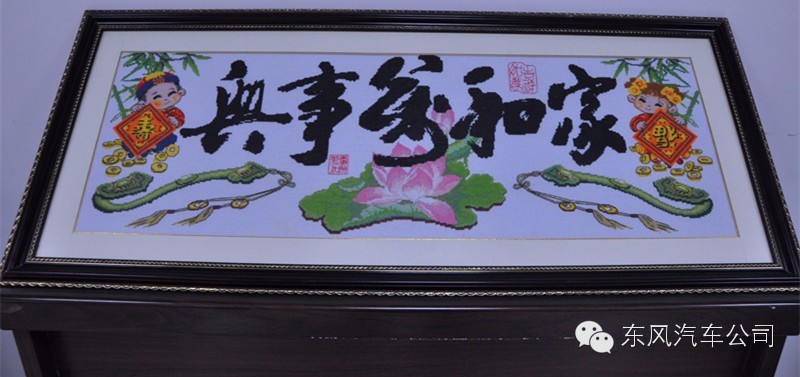 家和萬事興
福
東风汽车公司